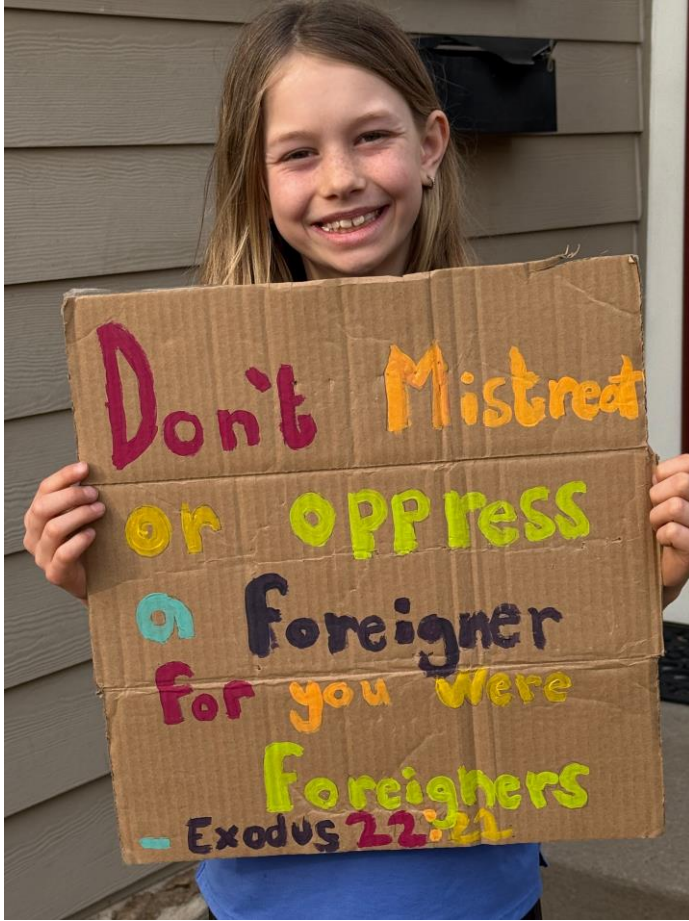 Don't Mistreat
or oppress
a foreigner
for you were
foreigners
- Exodus 22:21